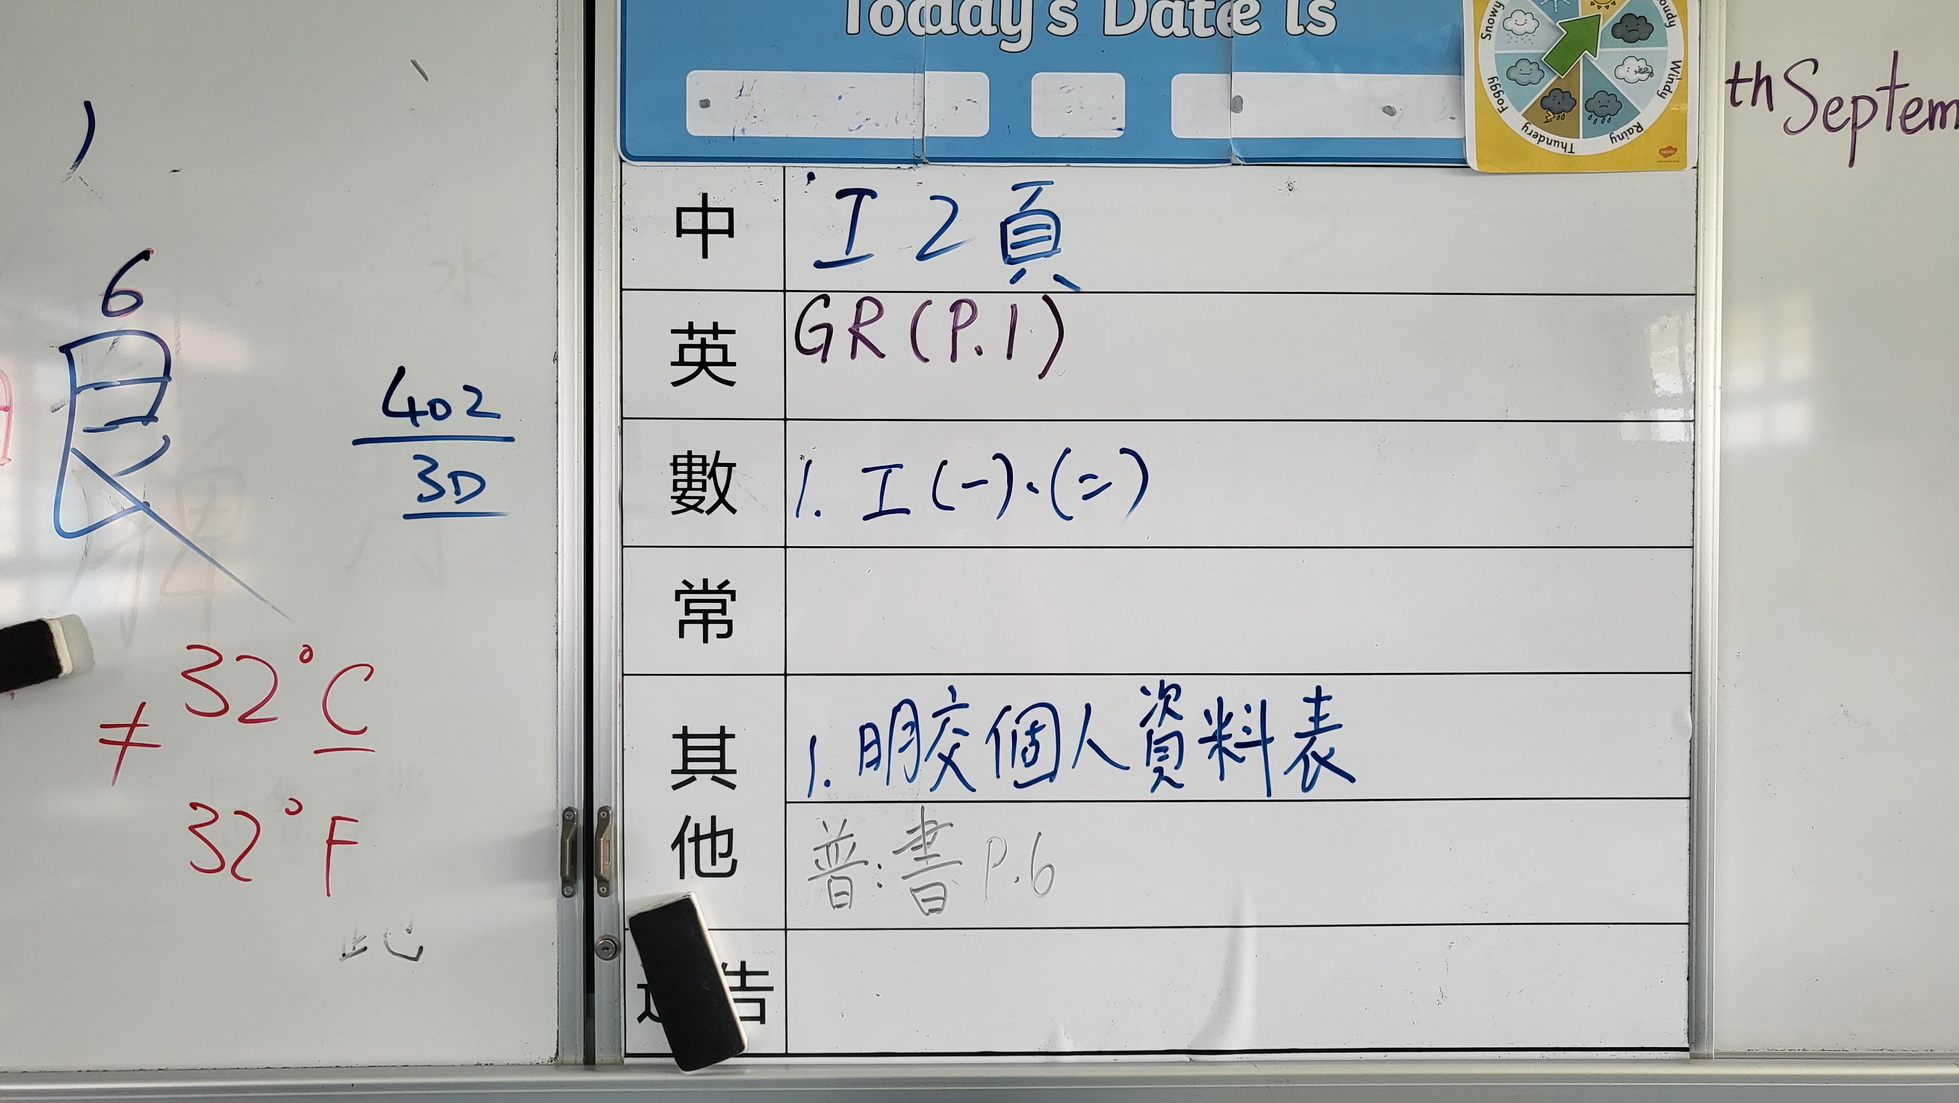 Today's Date is
Snowy
Windy
Rainy
Thundery
Foggy
th Septem
中 工2頁
英 GR(P.1)
數 1. 工(一).(二)
常
其他 1. 明交個人資料表
普:書 P.6
告
6
402
3D
≠ 32°C
32°F